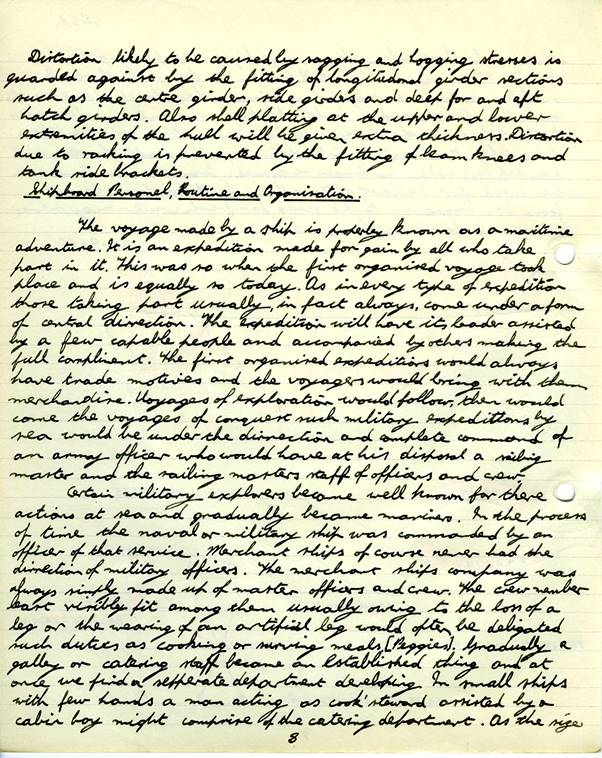 Distortion likely to be caused by sagging and hogging stresses is
guarded against by the fitting of longitudonal girder sections
such as the centre girder, side girdes and deep for and aft
hatch girders. Also shell platting at the upper and lower
extremities of the hull will be given extra thickness. Distortion
due to racking is prevented by the fitting of beam knees and
tank side brackets.
Shipboard Personel, Routine and Organisation.
The voyage made by a ship is properly known as a maritime
adventure. It is an expedition made for gain by all who take
part in it. This was so when the first organised voyage took
place and is equally so today. As in every type of expedition
those taking part usually, in fact always, come under a form
of central direction. The expedition will have its leader assisted
by a few capable people and accompanied by others making the
full compliment. The first organised expeditions would always
have trade motives and the voyagers would bring with them
merchandise. Voyages of exploration would follow, then would
come the voyages of conquest such military expedittons by
sea would be under the dirrection and complete command of
an army officer who would have at his disposal a sailing
master and the sailing masters staff of officers and crew.
Certain military explorers became well known for there
actions at sea and gradually became mariners. In the process
of time the naval or military ship was commanded by an
officer of that service. Merchant ships of course never had the
dirrection of military officers. The merchant ships company was
always simply made up of master officers and crew. The crew number
least visibly fit among them usually owing to the loss of a
leg or the wearing of an artificial leg would often be deligated
such duties as cooking or surving meals (Peggies). Gradually a
galley or catering staff became an Established thing and at
once we find a sepperate department developing. In small ships
with few hands a man acting as cook steward assisted by a
cabin boy might comprise of the catering department. As the size
8